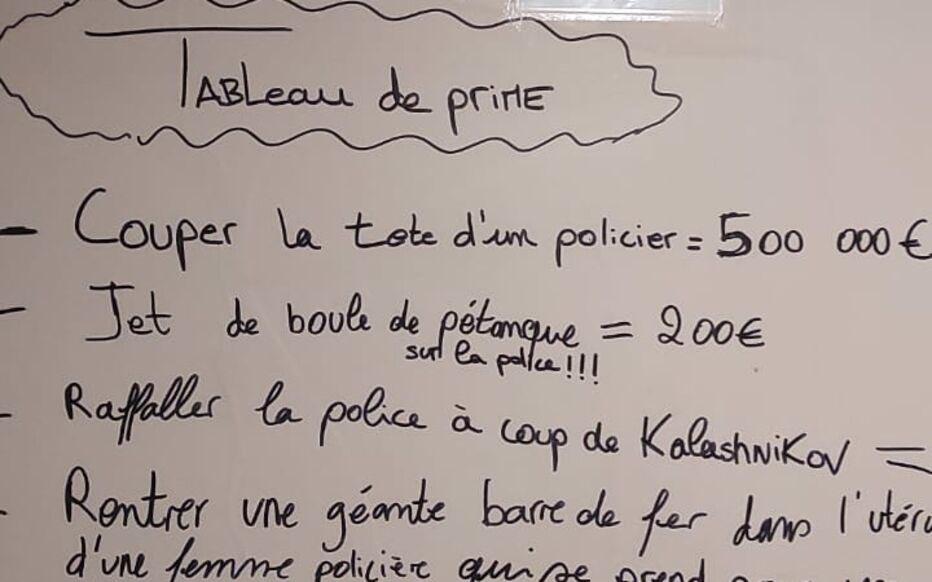 TABLeau de priME
- Couper la tete d'un policier = 500 000 €
- Jet de boule de pétanque = 200€
sur la police!!!
- Raffaller la police à coup de KalashNiKoV =
- Rentrer une géante barre de fer dans l'utéru
d'une femme policière qui se prend